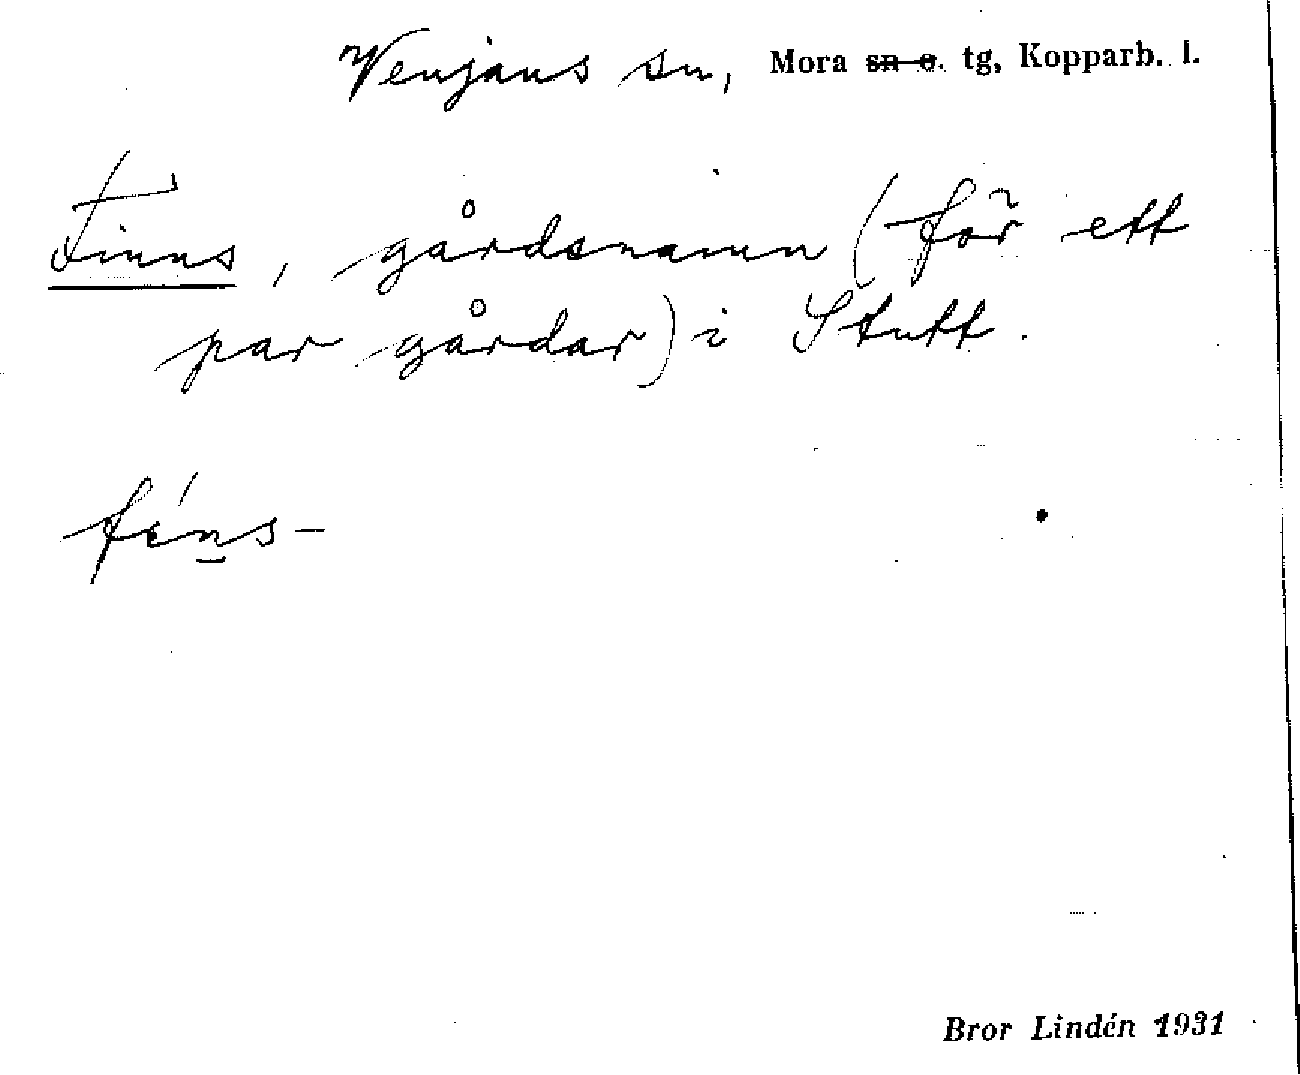 Venjans sn, Mora sn o. tg, Kopparb. l.
Finns, gårdsnamn (för ett
par gårdar) i Stutt.
fíns-
Bror Lindén 1931